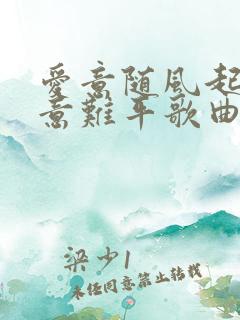 愛意随風起
意難平歌曲
梁少1
未经同意禁止转载